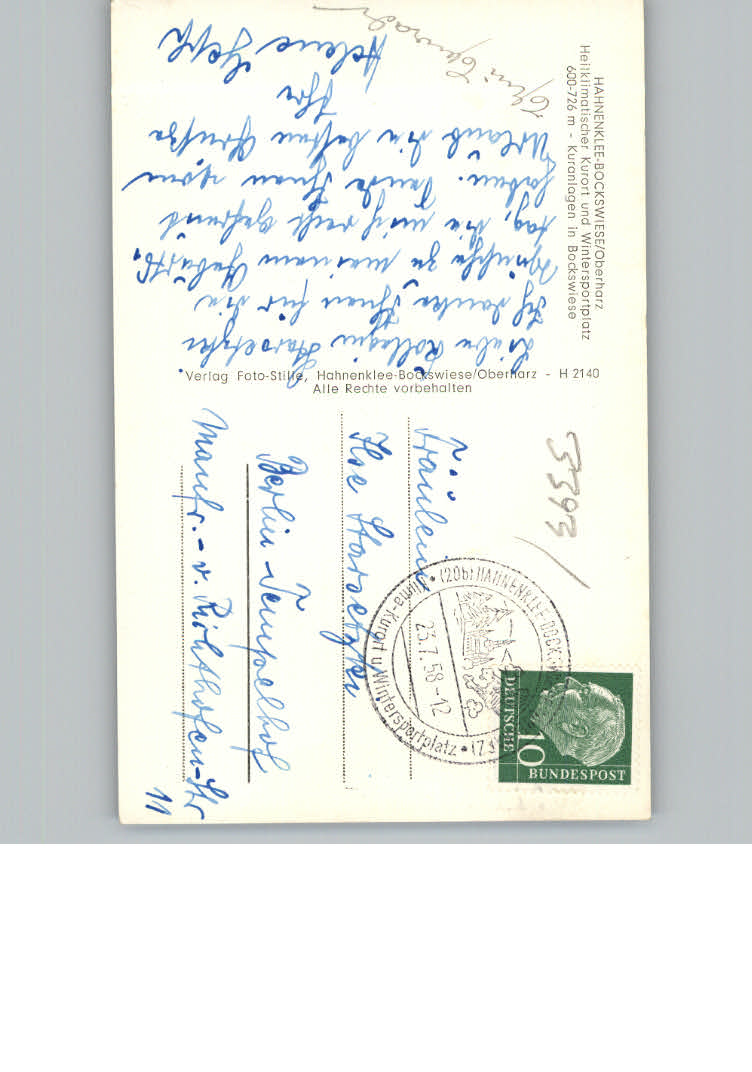 HAHNENKLEE-BOCKSWIESE/Oberharz
Heilklimatischer Kurort und Wintersportplatz
600-726 m - Kuranlagen in Bockswiese
Liebe Kollegin Starostzki.
Ich danke Ihnen für die
Wünsche zu meinem Geburts-
tag, die mich recht gefreut
haben. Sende Ihnen vom
Urlaub die besten Grüsse
Ihre
Helene
Verlag Foto-Stille, Hahnenklee-Bockswiese/Oberharz - H 2140
Alle Rechte vorbehalten
5393
Fräulein
Ilse
Berlin-Tempelhof
Manfr.-v. Richthofen-Str
11
(20b) HAHNENKLEE-BOCKSW
23.7.58-12
Klima-Kurort u. Wintersportplatz
DEUTSCHE
BUNDESPOST
10